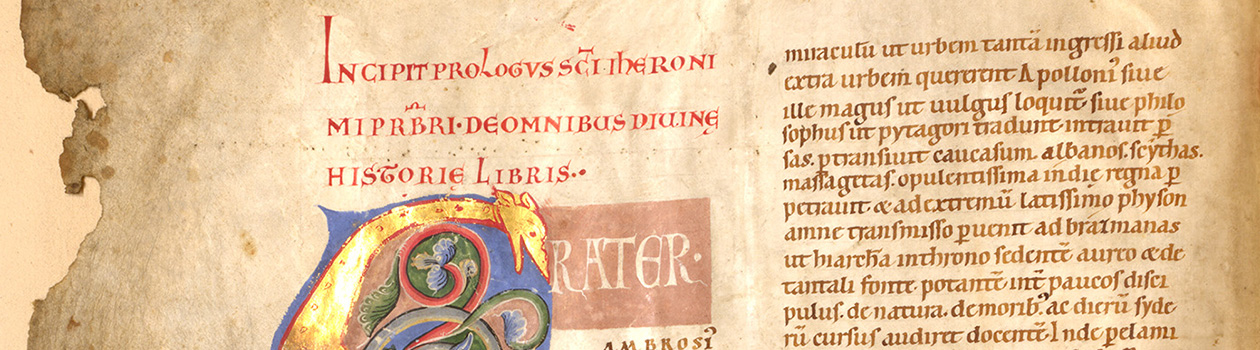 INCIPIT PROLOGVS SC̄I IHERONI
MI PR̄BRI · DE OMNIBUS DIUINĘ
HISTORIE LIBRIS··
FRATER·
AMBROSI᾽
miraculū ut urbem tantā ingressi aliud
extra urbem quererent Apolloni᾽ siue
ille magus ut uulgus loquit᷑ siue philo
sophus ut pytagori tradunt· intrauit p̄
sas. p̄transiuit caucasum albanos. scythas.
massagetas. opulentissima indie regna p̄
petrauit & ad extremū latissimo physon
amne transmisso p̄uenit ad bragmanas
ut hiarcħa in throno sedentē aureo & de
tantali fonte potantē int᷑ paucos disci
pulos. de natura. de morib᾽ ac dierū syde
rū cursus audiret docentē. Inde p̄ elami